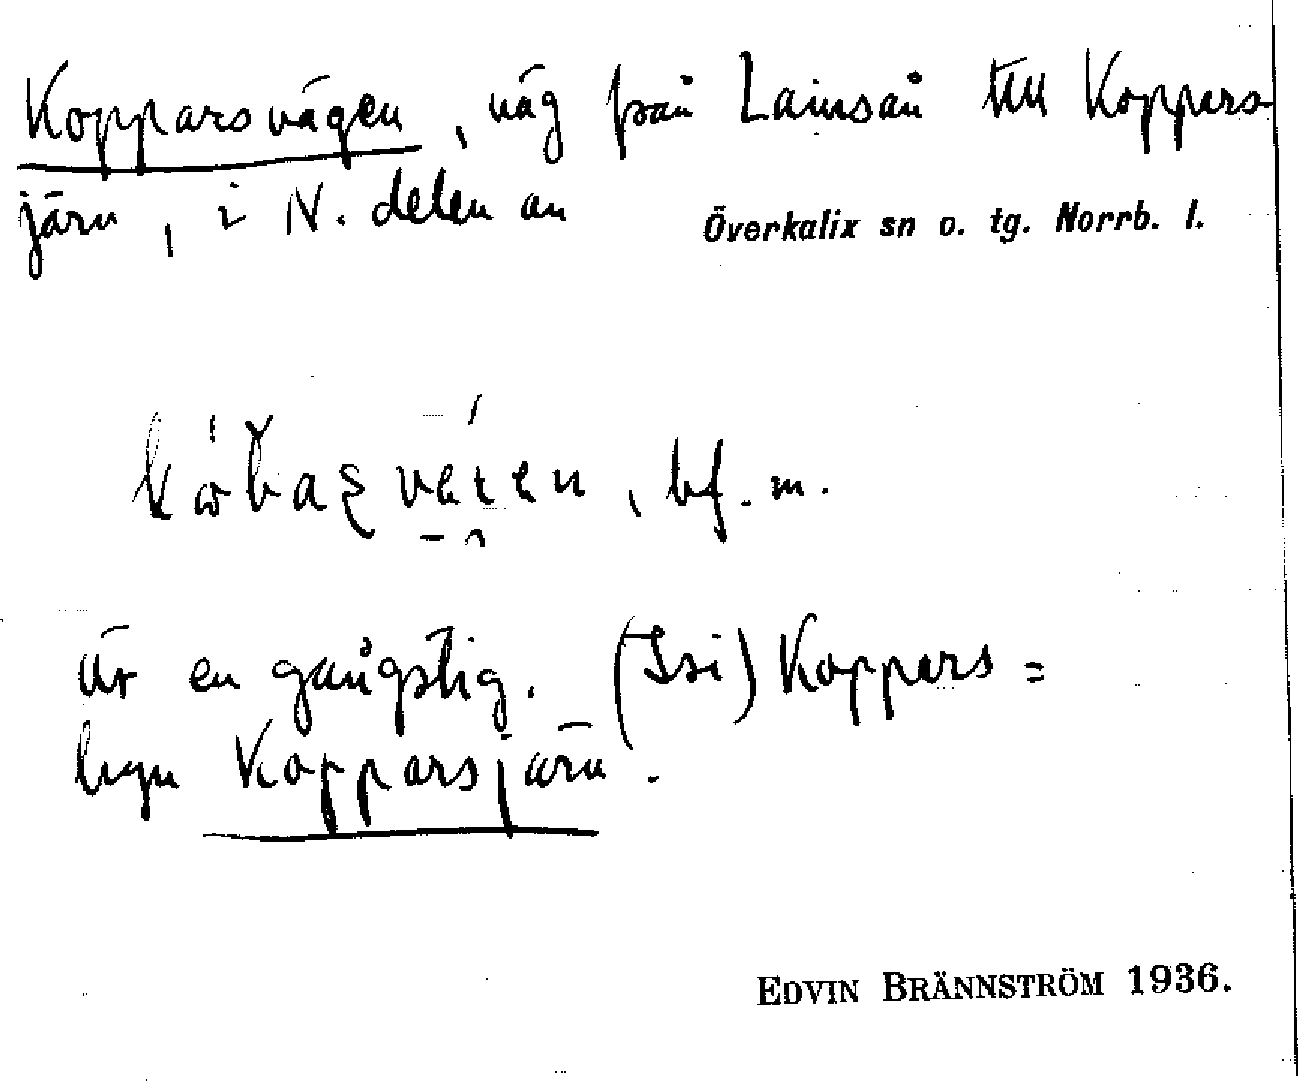 Kopparsvägen, väg från Lainsån till Koppars-
järv, i N. delen av
Överkalix sn o. tg. Norrb. l.
bf. m.
är en gångstig. (Isi) Koppars =
Kopparsjärv.
EDVIN BRÄNNSTRÖM 1936.